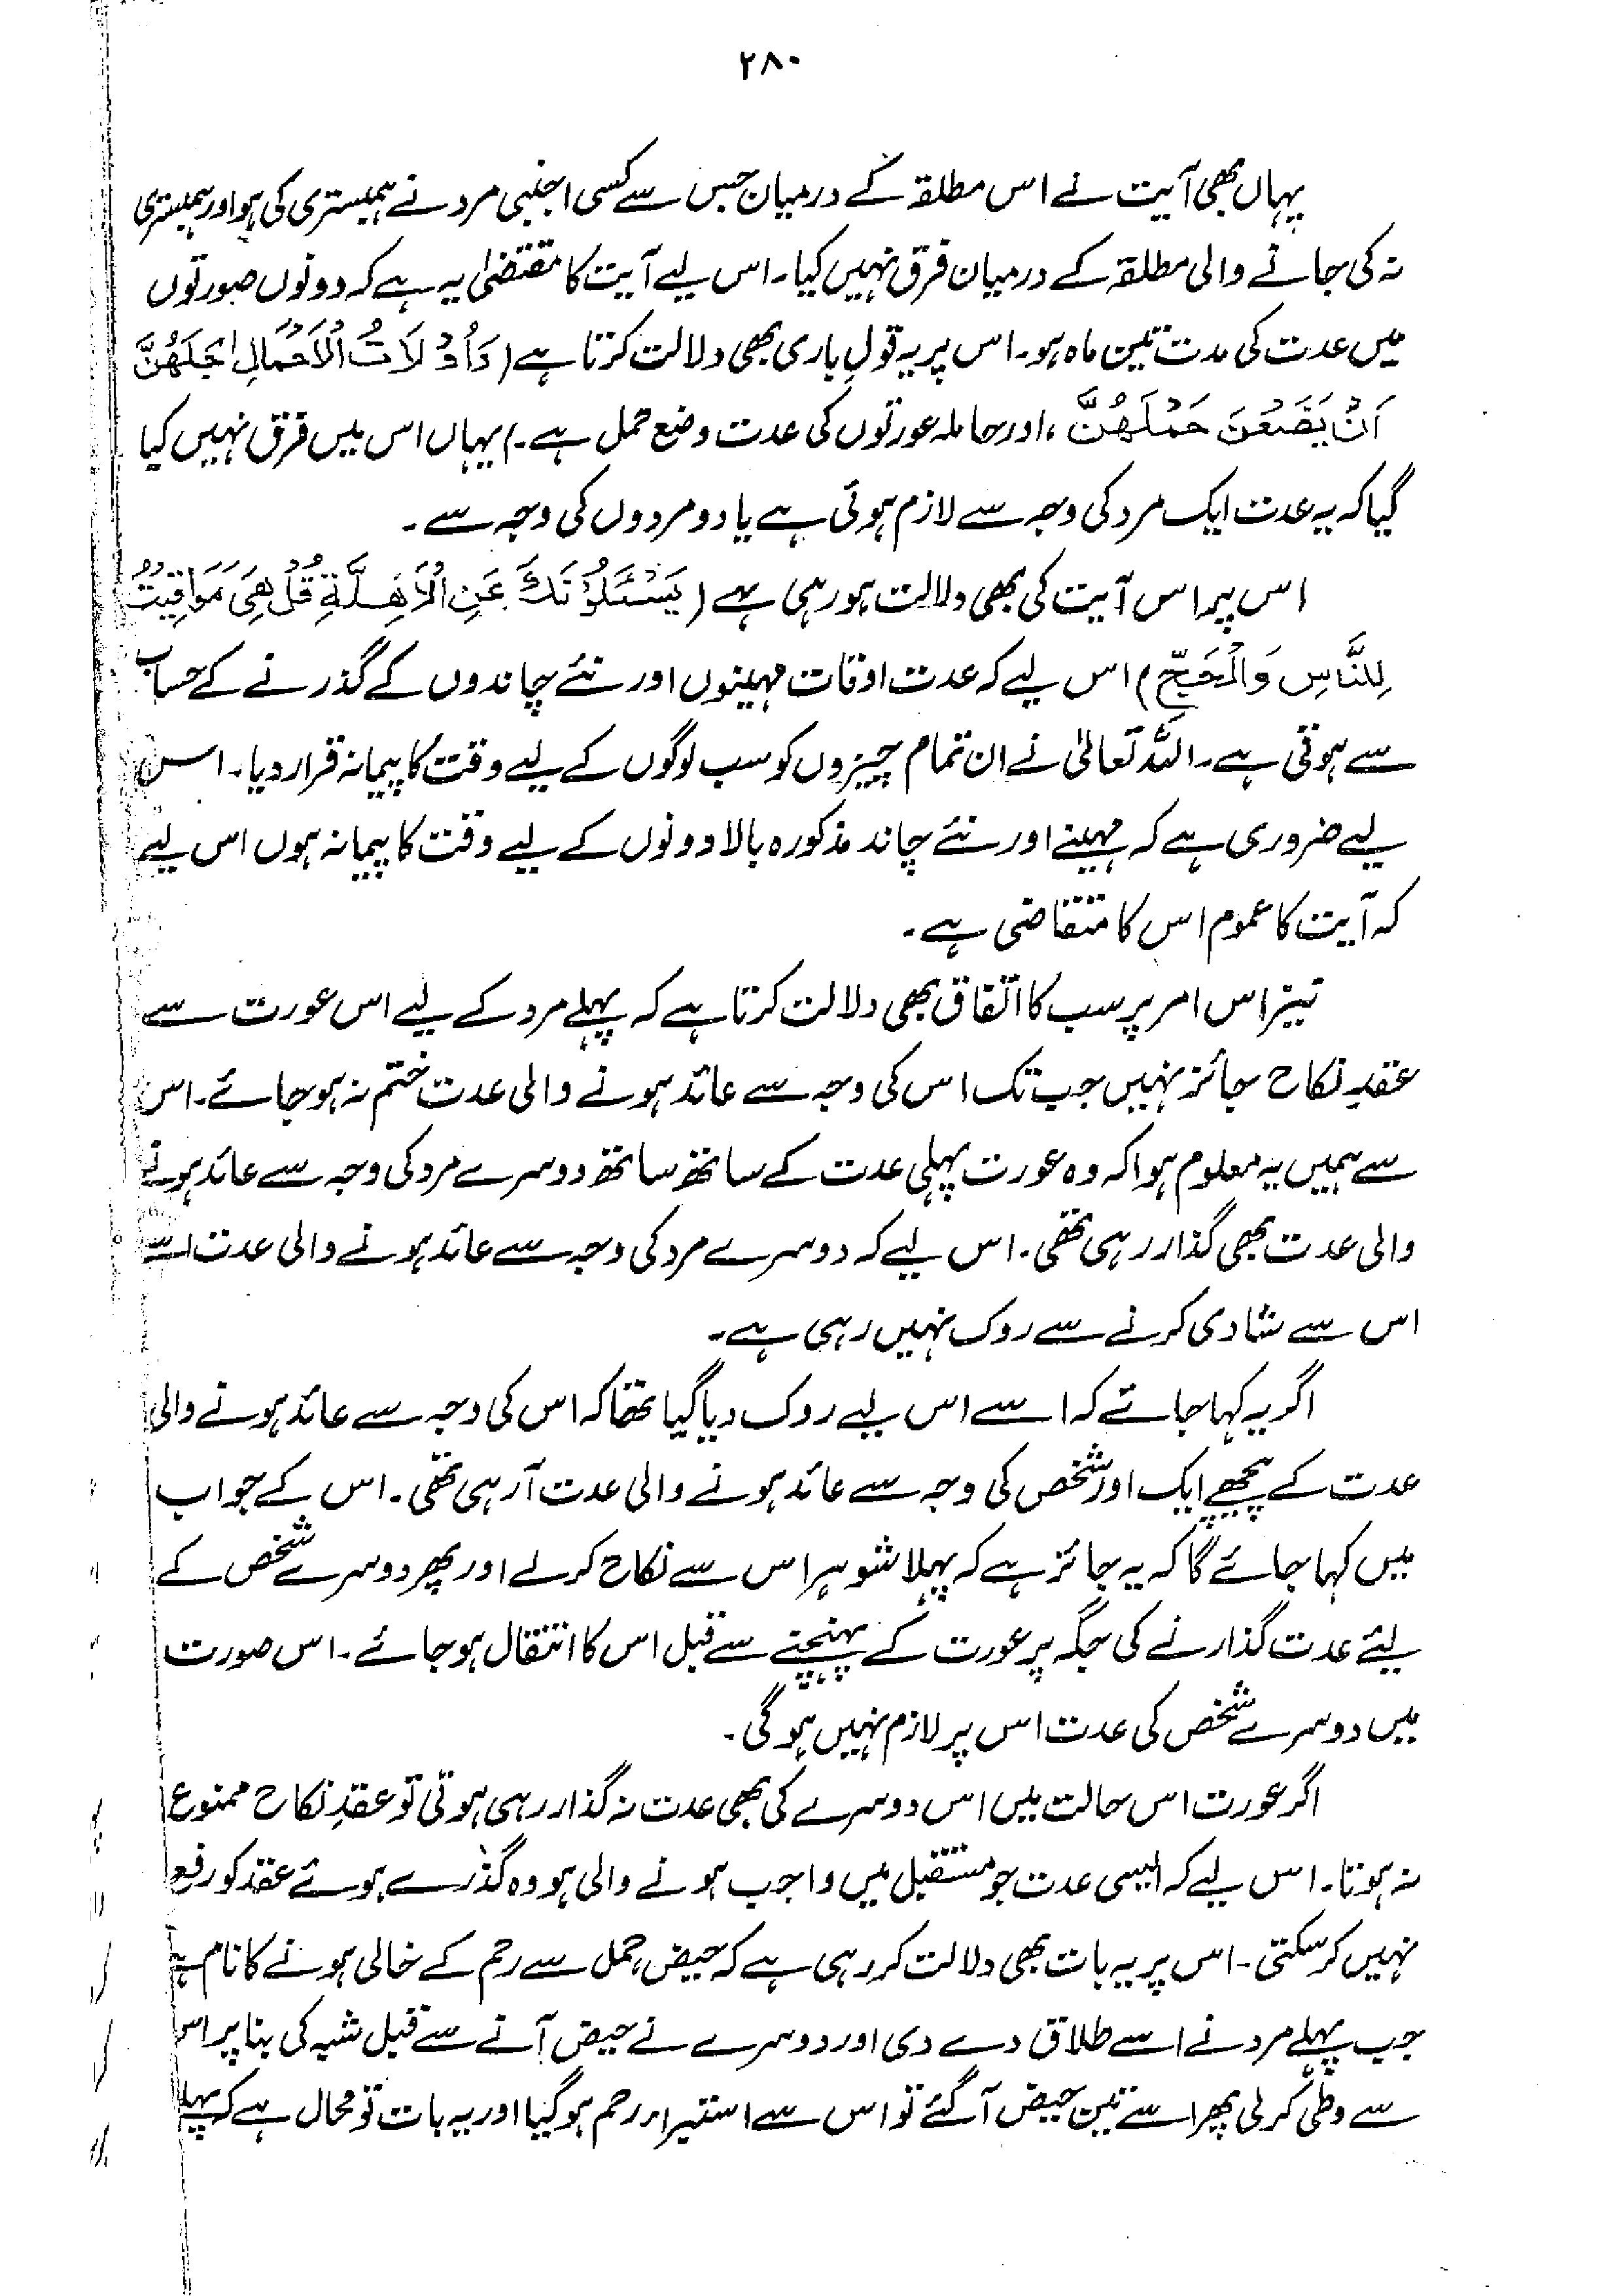 ۲۸۰
یہاں بھی آیت نے اس مطلقہ کے درمیان جس سے کسی اجنبی مرد نے ہمبستری کی ہو اور ہمبستری
نہ کی جانے والی مطلقہ کے درمیان فرق نہیں کیا۔ اس لیے آیت کا مقتضیٰ یہ ہے کہ دونوں صورتوں
میں عدت کی مدت تین ماہ ہو۔ اس پر یہ قولِ باری بھی دلالت کرتا ہے (وَاُوْلَاتُ الْاَحْمَالِ اَجَلُهُنَّ
اَنْ يَضَعْنَ حَمْلَهُنَّ ، اور حاملہ عورتوں کی عدت وضع حمل ہے۔) یہاں اس میں فرق نہیں کیا
گیا کہ یہ عدت ایک مرد کی وجہ سے لازم ہوئی ہے یا دو مردوں کی وجہ سے۔
اس پر اس آیت کی بھی دلالت ہو رہی ہے (يَسْئَلُوْنَكَ عَنِ الْاَهِلَّةِ قُلْ هِيَ مَوَاقِيْتُ
لِلنَّاسِ وَالْحَجِّ) اس لیے کہ عدت اوقات مہینوں اور نئے چاندوں کے گذرنے کے حساب
سے ہوتی ہے۔ اللہ تعالیٰ نے ان تمام چیزوں کو سب لوگوں کے لیے وقت کا پیمانہ قرار دیا۔ اس
لیے ضروری ہے کہ مہینے اور نئے چاند مذکورہ بالا دونوں کے لیے وقت کا پیمانہ ہوں اس لیے
کہ آیت کا عموم اس کا متقاضی ہے۔
نیز اس امر پر سب کا اتفاق بھی دلالت کرتا ہے کہ پہلے مرد کے لیے اس عورت سے
عقدِ نکاح جائز نہیں جب تک اس کی وجہ سے عائد ہونے والی عدت ختم نہ ہو جائے۔ اس
سے ہمیں یہ معلوم ہوا کہ وہ عورت پہلی عدت کے ساتھ ساتھ دوسرے مرد کی وجہ سے عائد ہونے
والی عدت بھی گذار رہی تھی۔ اس لیے کہ دوسرے مرد کی وجہ سے عائد ہونے والی عدت اسے
اس سے شادی کرنے سے روک نہیں رہی ہے۔
اگر یہ کہا جائے کہ اسے اس لیے روک دیا گیا تھا کہ اس کی وجہ سے عائد ہونے والی
عدت کے پیچھے ایک اور شخص کی وجہ سے عائد ہونے والی عدت آ رہی تھی۔ اس کے جواب
میں کہا جائے گا کہ یہ جائز ہے کہ پہلا شوہر اس سے نکاح کر لے اور پھر دوسرے شخص کے
لیئے عدت گذارنے کی جگہ پر عورت کے پہنچنے سے قبل اس کا انتقال ہو جائے۔ اس صورت
میں دوسرے شخص کی عدت اس پر لازم نہیں ہو گی۔
اگر عورت اس حالت میں اس دوسرے کی بھی عدت نہ گذار رہی ہوتی تو عقدِ نکاح ممنوع
نہ ہوتا۔ اس لیے کہ ایسی عدت جو مستقبل میں واجب ہونے والی ہو وہ گذرے ہوئے عقد کو رفع
نہیں کر سکتی۔ اس پر یہ بات بھی دلالت کر رہی ہے کہ حیض، حمل سے رحم کے خالی ہونے کا نام ہے
جب پہلے مرد نے اسے طلاق دے دی اور دوسرے نے حیض آنے سے قبل شبہ کی بنا پر اس
سے وطی کر لی پھر اسے تین حیض آ گئے تو اس سے استبراء رحم ہو گیا اور یہ بات تو محال ہے کہ پہلے